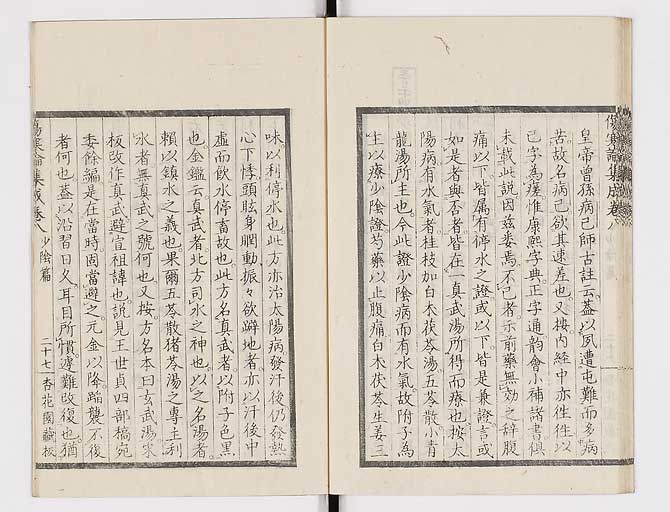 皇帝曾孫病已師古註云蓋以夙遭屯難而多病
苦故名病已欲其速差也又按内經中亦徃徃以
已字為瘼惟康熙字典正字通韵會小補諸書俱
未載此説因玆委焉不已者示前藥無効之辭腹
痛以下皆属有停水之證或以下皆是兼證言或
如是者與否者皆在一真武湯所得而療也按太
陽病有水氣者桂枝加白朮茯苓湯五苓散小青
龍湯所主也今此證少陰病而有水氣故附子為
主以療少陰證芍藥以止腹痛白朮茯苓生姜三
味以利停水也此方亦治太陽病發汗後仍發熱
心下悸頭眩身瞤動振々欲擗地者亦以汗後中
虚而飲水停畜故也此方名真武者以附子色黒
也金鑑云真武者北方司水之神也以之名湯者
頼以鎮水之義也果爾五苓散猪苓湯之專主利
水者無真武之號何也又按方名本曰玄武湯宋
板改作真武避宣祖諱也説見王世貞四部稿宛
委餘編是在當時固當避之元金以降蹈襲不復
者何也蓋以沿習日久耳目所慣遽難改復也猶
傷寒論集成卷八 少陰篇 二十七 杏花園藏板
傷寒論集成卷八